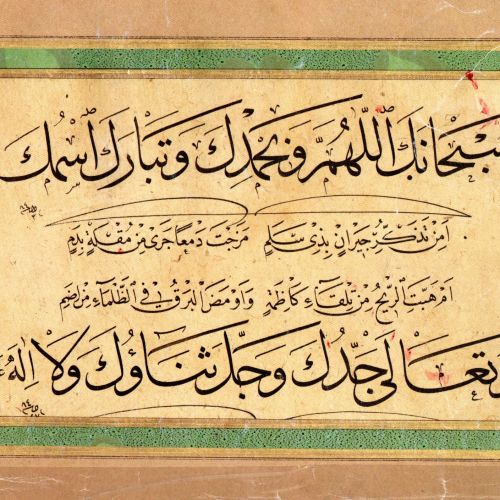 سبحانك اللهم وبحمدك وتبارك اسمك
أمن تذكر جيران بذي سلم مزجت دمعا جرى من مقلة بدم
أم هبت الريح من تلقاء كاظمة وأومض البرق في الظلماء من إضم
وتعالى جدك وجل ثناؤك ولا إله